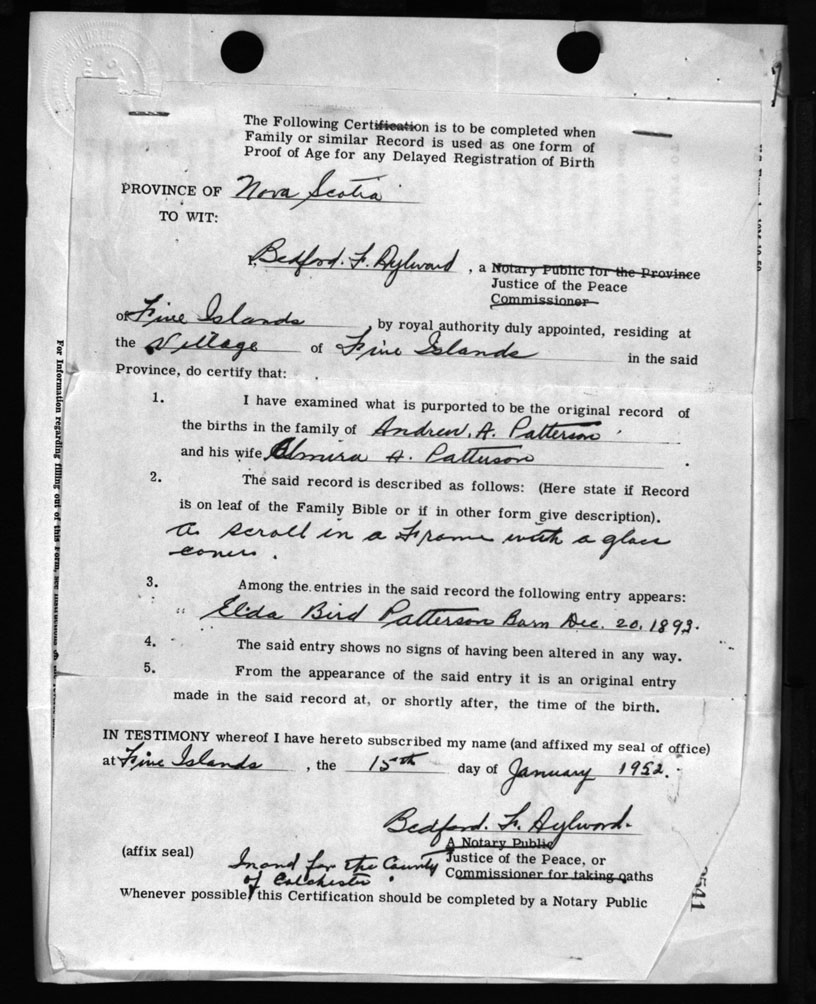 The Following Certification is to be completed when
Family or similar Record is used as one form of
Proof of Age for any Delayed Registration of Birth
PROVINCE OF Nova Scotia
TO WIT:
I, Bedford. F. Aylward , a Notary Public for the Province
Justice of the Peace
Commissioner
of Five Islands by royal authority duly appointed, residing at
the Village of Five Islands in the said
Province, do certify that:
1. I have examined what is purported to be the original record of
the births in the family of Andrew. A. Patterson
and his wife Elmira A. Patterson .
2. The said record is described as follows: (Here state if Record
is on leaf of the Family Bible or if in other form give description).
A scroll in a Frame with a glass
cover.
3. Among the entries in the said record the following entry appears:
" Elda Bird Patterson Barn Dec. 20, 1893.
4. The said entry shows no signs of having been altered in any way.
5. From the appearance of the said entry it is an original entry
made in the said record at, or shortly after, the time of the birth.
IN TESTIMONY whereof I have hereto subscribed my name (and affixed my seal of office)
at Five Islands , the 15th day of January 1952.
Bedford. F. Aylward.
A Notary Public
(affix seal) In and for the County Justice of the Peace, or
of Colchester. Commissioner for taking oaths
Whenever possible, this Certification should be completed by a Notary Public
For Information regarding filling out of this Form, see
3541